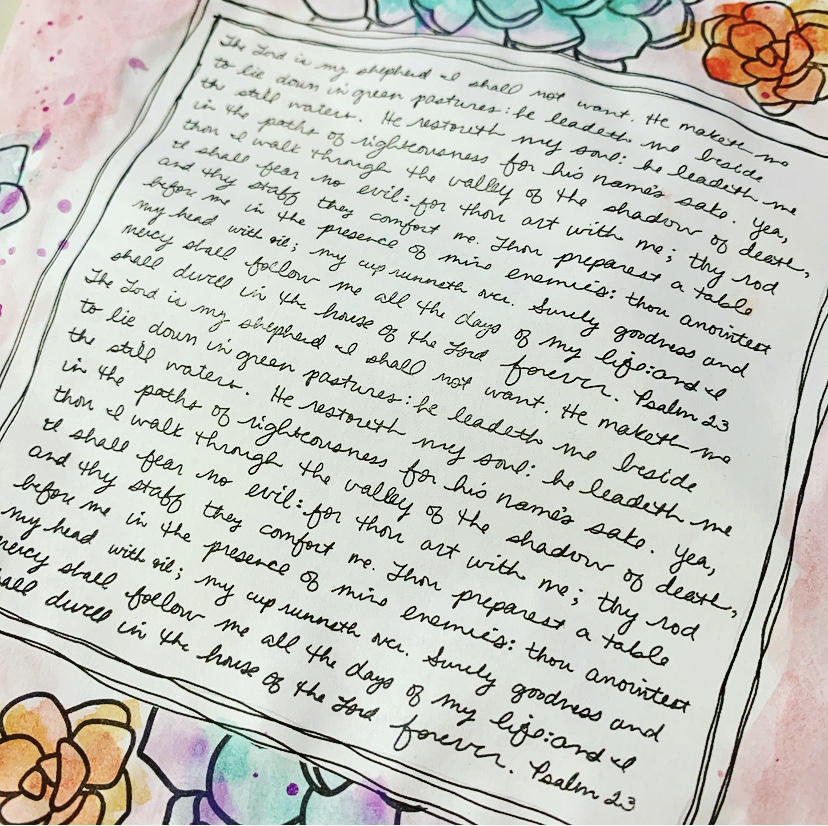 The Lord is my shepherd I shall not want. He maketh me
to lie down in green pastures: he leadeth me beside
the still waters. He restoreth my soul: he leadeth me
in the paths of righteousness for his name's sake. Yea,
thou I walk through the valley of the shadow of death,
I shall fear no evil: for thou art with me; thy rod
and thy staff they comfort me. Thou preparest a table
before me in the presence of mine enemies: thou anointest
my head with oil; my cup runneth over. Surely goodness and
mercy shall follow me all the days of my life: and I
shall dwell in the house of the Lord forever. Psalm 23
The Lord is my shepherd I shall not want. He maketh me
to lie down in green pastures: he leadeth me beside
the still waters. He restoreth my soul: he leadeth me
in the paths of righteousness for his name's sake. Yea,
thou I walk through the valley of the shadow of death,
I shall fear no evil: for thou art with me; thy rod
and thy staff they comfort me. Thou preparest a table
before me in the presence of mine enemies: thou anointest
my head with oil; my cup runneth over. Surely goodness and
mercy shall follow me all the days of my life: and I
shall dwell in the house of the Lord forever. Psalm 23